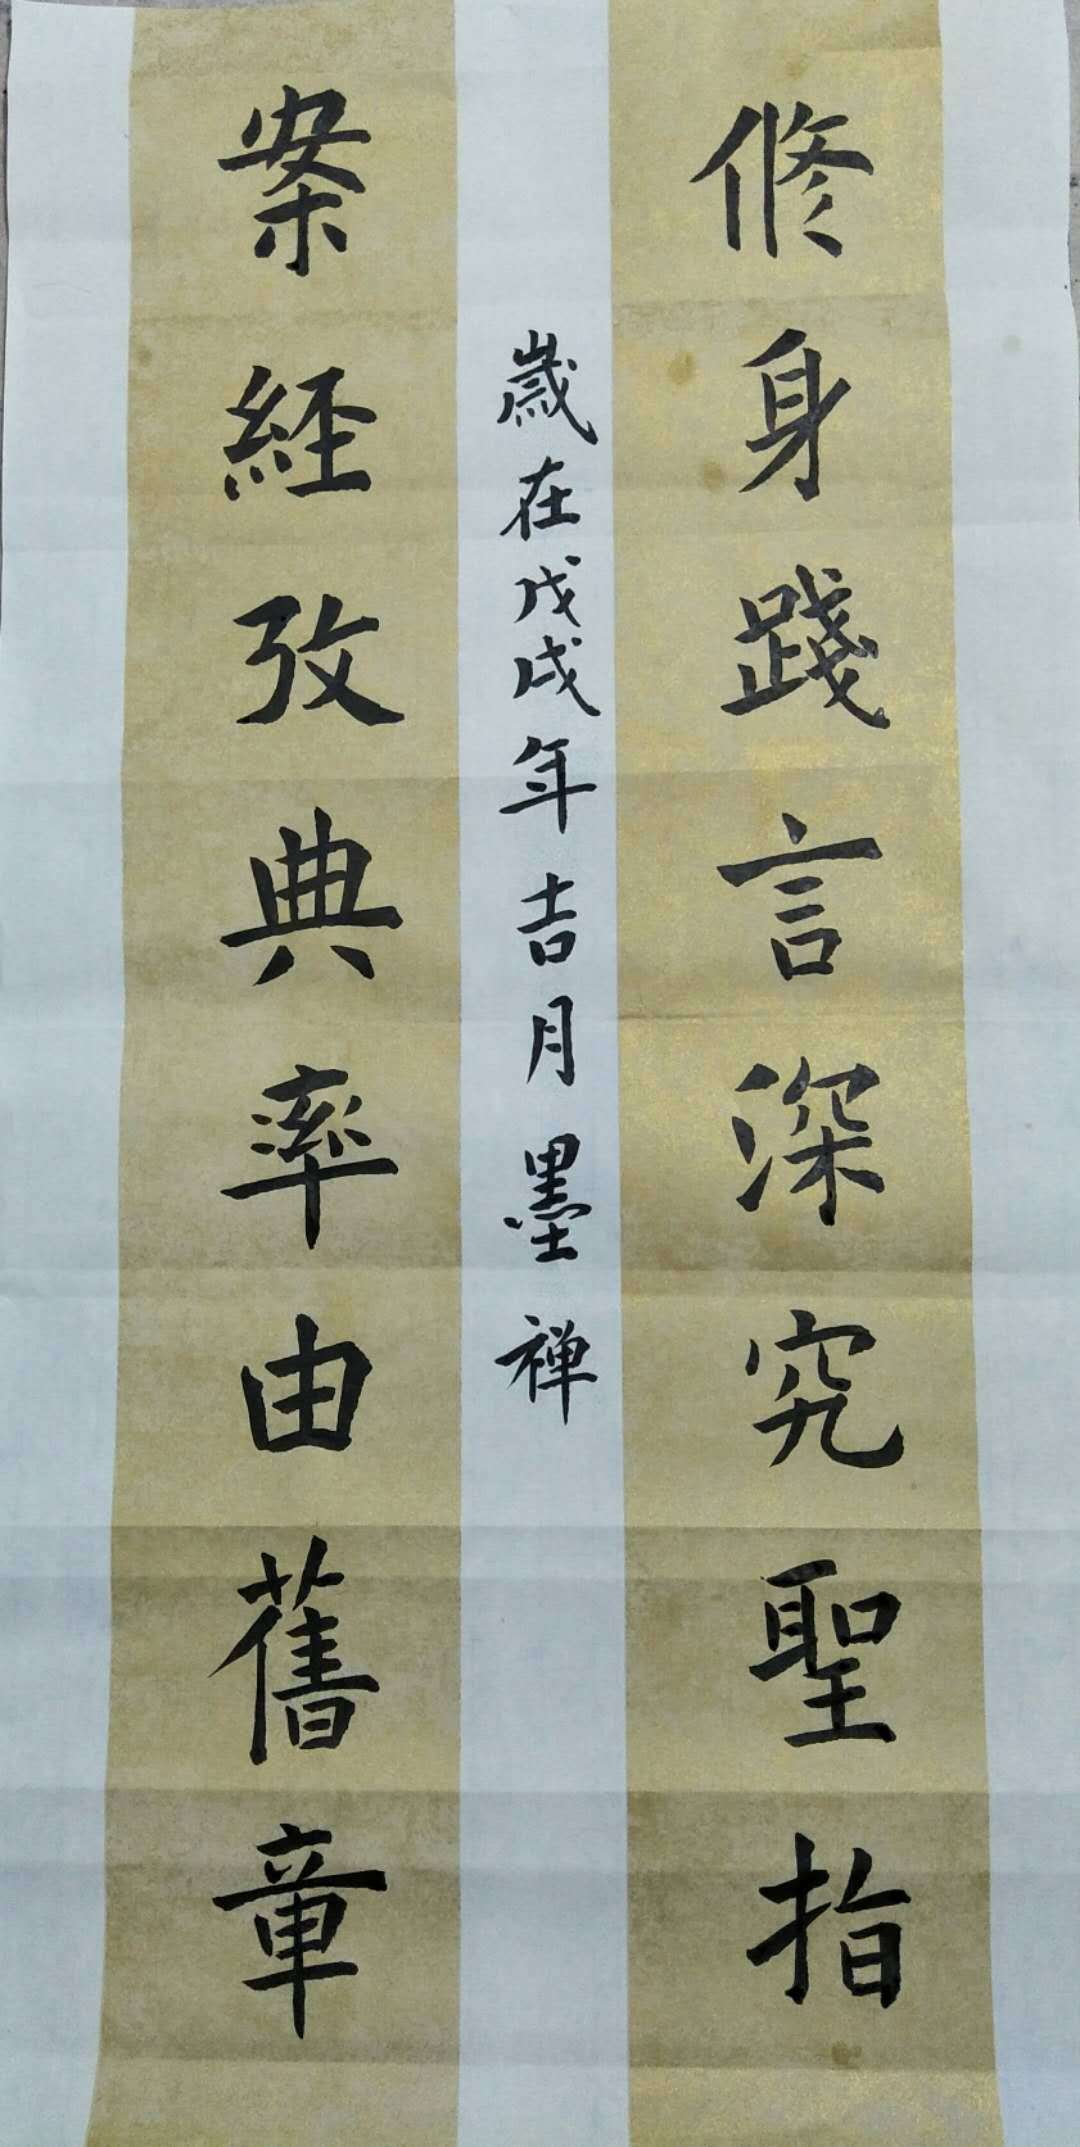 修身踐言深究聖指
歲在戊戌年吉月墨禅
案經攷典率由舊章